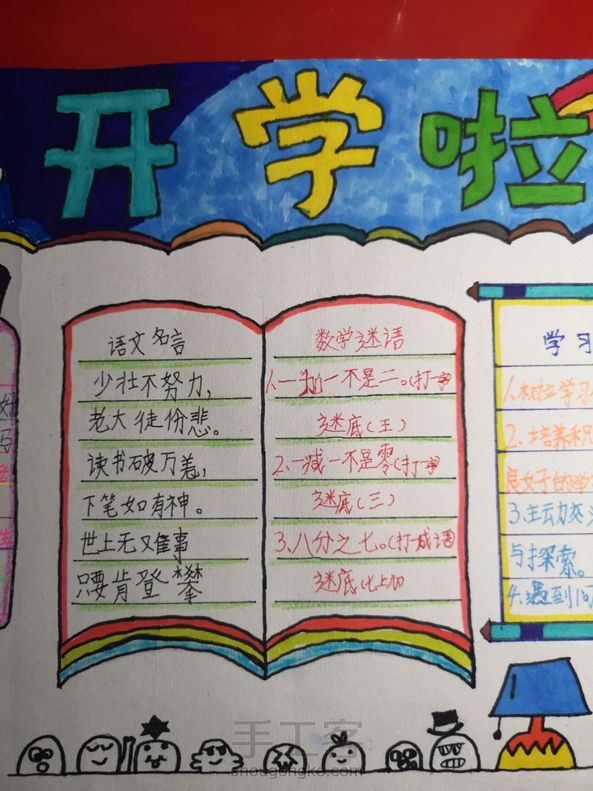 开学啦
语文名言
少壮不努力,
老大徒伤悲。
读书破万卷,
下笔如有神。
世上无难事
只要肯登攀
数学谜语
1.一加一不是二。(打一字
谜底(王)
2.一减一不是零(打一字
谜底(三)
3.八分之七。(打成语
谜底
学习
1.树立学习
2.培养积
良好的学
3.主动交
与探索。
4.遇到问
手工客
shougongke.com